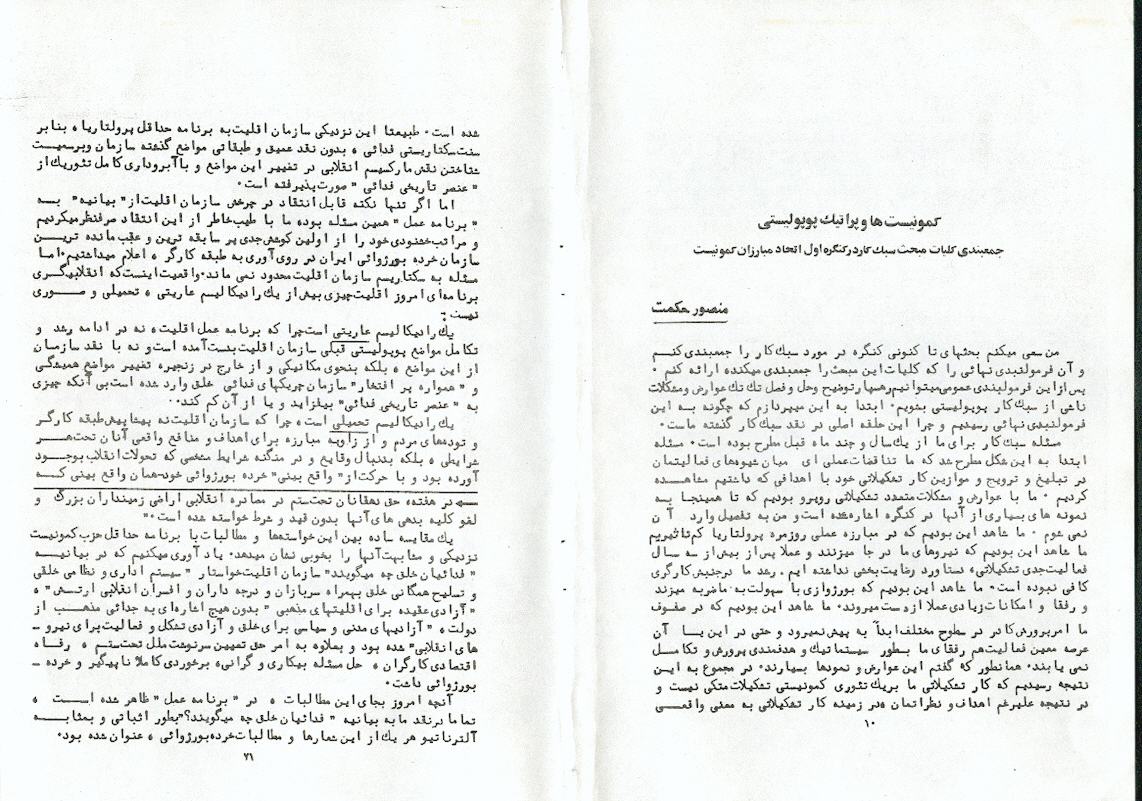 کمونیست ها و پراتیك پوپولیستی
جمعبندی کلیات مبحث سبك کار در کنگره اول اتحاد مبارزان کمونیست
منصور حکمت
من سعی میکنم بحثهای تا کنونی کنگره در مورد سبك کار را جمعبندی کنم
و آن فرمولبندی نهائی را که کلیات این مبحث را جمعبندی میکنده ارائه کنم ۰
پس از این فرمولبندی عمومی میتوانیم رهسپار توضیح وحل و فصل تك تك عوارض و مشکلات
ناشی از سبك کار پوپولیستی بشویم۰ ابتدا به این میپردازم که چگونه به این
فرمولبندی نهائی رسیدیم و چرا این حلقه اصلی در نقد سبك کار گذشته ماست۰
مسئله سبك کار برای ما از یك سال و چند ماه قبل مطرح بوده است۰ مسئله
ابتدا به این شکل مطرح شد که ما تناقضات عملی ای میان شیوه‌های فعالیتمان
در تبلیغ و ترویج و موازین کار تشکیلاتی خود با اهدافی که داشتیم مشاهده
کردیم ۰ ما با عوارض و مشکلات متعدد تشکیلاتی روبرو بودیم که تا همینجا به
نمونه های بسیاری از آنها در کنگره اشاره شده است و من به تفصیل وارد آن
نمی شوم ۰ ما شاهد این بودیم که در مبارزه عملی روزمره پرولتاریا کم تاثیریم
ما شاهد این بودیم که نیروهای ما در جا میزنند و عملا پس از بیش از سه سال
فعالیت جدی تشکیلاتی، دستاورد رضایت بخشی نداشته ایم. رشد ما در جنبش کارگری
کافی نبوده است۰ ما شاهد این بودیم که بورژوازی با سهولت به ما ضربه میزند
و رفقا و امکانات زیادی عملا از دست میروند۰ ما شاهد این بودیم که در صفوف
ما امر پرورش کادر در سطوح مختلف ابدآ به پیش نمیرود و حتی در این یا آن
عرصه معین فعالیت هم رفقای ما بطور سیستماتیك و هدفمندی پرورش و تکامل
نمی یابند۰ همانطور که گفتم این عوارض و نمودها بسیارند۰ در مجموع به این
نتیجه رسیدیم که کار تشکیلاتی ما بر یك تئوری کمونیستی تشکیلات متکی نیست و
در نتیجه علیرغم اهداف و نظراتمان ه در زمینه کار تشکیلاتی به معنی واقعی
۱۰
شده است۰ طبیعتا این نزدیکی سازمان اقلیت به برنامه حداقل پرولتاریا ه بنابر
سنت سکتاریستی فدائی ه بدون نقد عمیق و طبقاتی مواضع گذشته سازمان وبرسمیت
شناختن نقش مارکسیسم انقلابی در تغییر این مواضع و با آبروداری کامل تئوریك از
" عنصر تاریخی فدائی " صورت پذیرفته است۰
اما اگر تنها نکته قابل انتقاد در چرخش سازمان اقلیت از" بیانیه" به
" برنامه عمل " همین مسئله بوده ما با طیب خاطر از این انتقاد صرفنظر میکردیم
و مراتب خشنودی خود را از اولین کوشش جدی پر سابقه ترین و عقب مانده ترین
سازمان خرده بورژوائی ایران در روی آوری به طبقه کارگر ه اعلام میداشتیم۰اما
مسئله به سکتاریسم سازمان اقلیت محدود نمی ماند۰ واقعیت اینست که انقلابیگری
برنامه‌ای امروز اقلیت چیزی بیش از یك رادیکالیسم عاریتی ه تحمیلی و صوری
نیست :
یك رادیکالیسم عاریتی است چرا که برنامه عمل اقلیت ه نه در ادامه رشد و
تکامل مواضع پوپولیستی قبلی سازمان اقلیت بدست آمده است و نه با نقد سازمان
از این مواضع ه بلکه بنحوی مکانیکی و از خارج در زنجیره تغییر مواضع همیشگی
و " همواره پر افتخار" سازمان چریکهای فدائی خلق وارد شده است بی آنکه چیزی
به " عنصر تاریخی فدائی" بیفزاید و یا از آن کم کند۰
یك رادیکالیسم تحمیلی است ه چرا که سازمان اقلیت نه پیشاپیش طبقه کارگر
و توده‌های مردم و از زاویه مبارزه برای اهداف و منافع واقعی آنان تحت هر
شرایطی ه بلکه بدنبال وقایع و در منگنه شرایط مشخصی که تحولات انقلاب بوجود
آورده بود و با حرکت از" واقع بینی" خرده بورژوائی خود-همان واقع بینی که
در هفته، حق دهقانان تحت ستم در مصادره انقلابی اراضی زمینداران بزرگ و
لغو کلیه بدهی های آنها بدون قید و شرط خواسته شده است۰"
یك مقایسه ساده بین این خواسته‌ها و مطالبات با برنامه حداقل حزب کمونیست
نزدیکی و مشابهت آنها را بخوبی نشان میدهد۰ یاد آوری میکنیم که در بیانیه
" فدائیان خلق چه میگویند" سازمان اقلیت خواستار " سیستم اداری و نظامی خلقی
و تسلیح همگانی خلق بهمراه سربازان و درجه داران و افسران انقلابی ارتش" ه
" آزادی عقیده برای اقلیتهای مذهبی " بدون هیچ اشاره‌ای به جدائی مذهب از
دولت ه " آزادیهای مدنی و سیاسی برای خلق و آزادی تشکل و فعالیت برای نیرو ـ
های انقلابی" شده بود و بعلاوه به امر حق تعیین سرنوشت ملل تحت ستم ه رفاه
اقتصادی کارگران ه حل مسئله بیکاری و گرانی ه برخوردی کاملا ناپیگیر و خرده ـ
بورژوائی داشت۰
آنچه امروز بجای این مطالبات ه در " برنامه عمل " ظاهر شده است ه
تماما در نقد ما به بیانیه " فدائیان خلق چه میگویند؟" بطور اثباتی و بمثابه
آلترناتیو هر یك از این شعارها و مطالبات خرده بورژوائی ه عنوان شده بود۰
۷۱